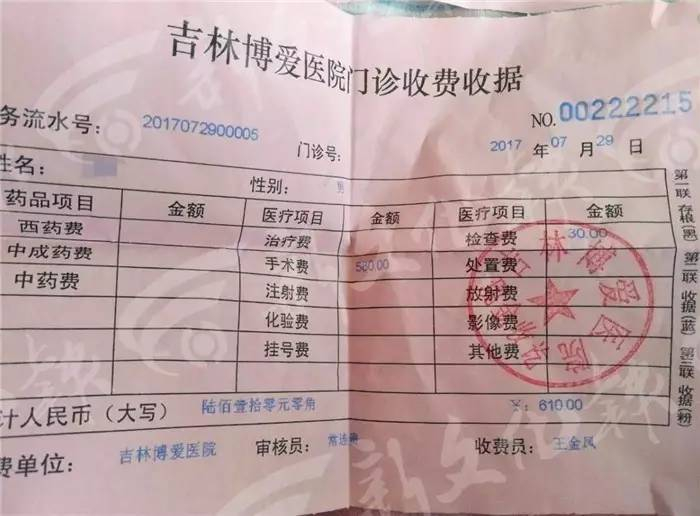 吉林博爱医院门诊收费收据
务流水号: 2017072900005 门诊号: NO.00222215
2017 年 07 月 29 日
姓名: 性别: 男
药品项目 金额 医疗项目 金额 医疗项目 金额
西药费 治疗费 检查费 30.00
中成药费 手术费 580.00 处置费
中药费 注射费 放射费
化验费 影像费
挂号费 其他费
计人民币(大写) 陆佰壹拾零元零角 ¥: 610.00
费单位: 吉林博爱医院 审核员: 收费员: 王金凤
第一联 存根(黑) 第二联 收据(蓝) 第三联 收据(粉)
吉林博爱医院
新文化报